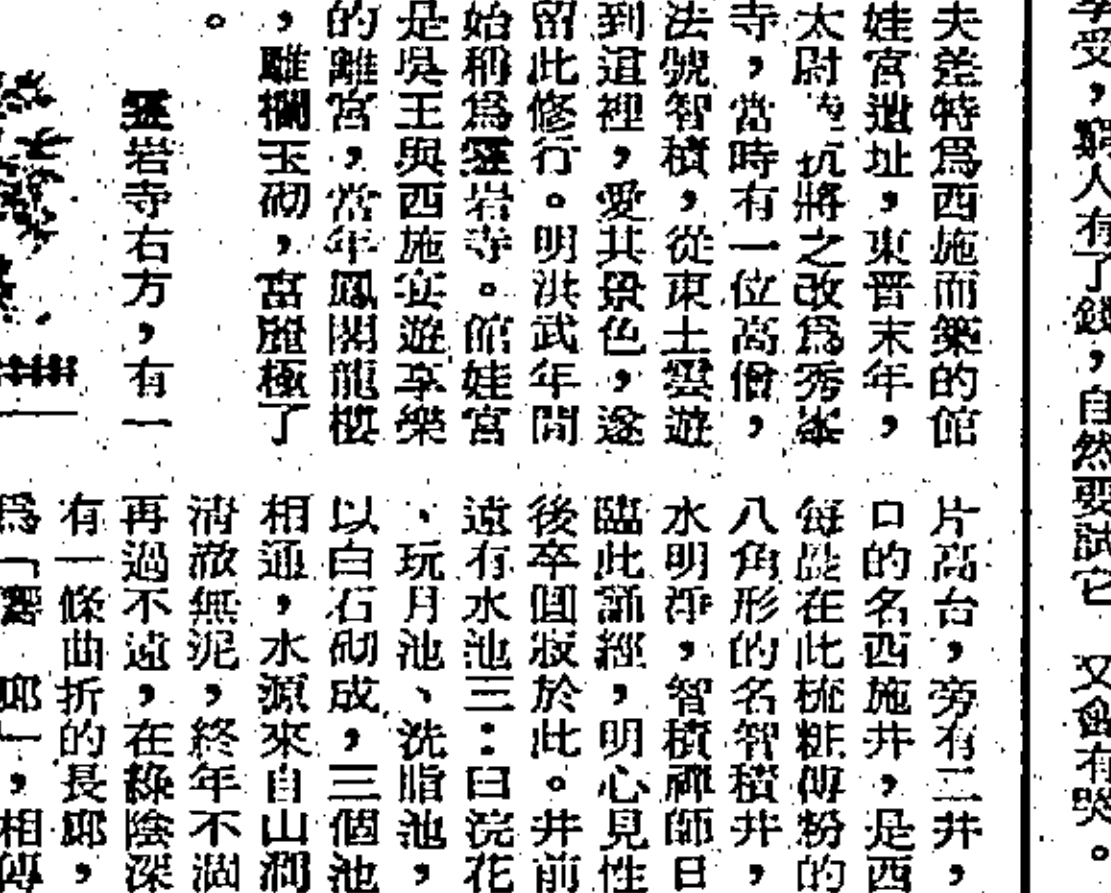 享受，窮人有了錢，自然要試它 又會有哭。
夫差特爲西施而築的館
娃宮遺址，東晉末年，
太尉 抗將之改爲秀峯
寺，當時有一位高僧，
法號智積，從東土雲遊
到道裡，愛其景色，遂
留此修行。明洪武年間
始稱爲靈岩寺。館娃宮
是吳王與西施宴遊享樂
的離宮，當年鳳閣龍樓
，雕欄玉砌，富麗極了
。
靈岩寺右方，有一
片高台，旁有二井，
口的名西施井，是西
每 在此梳粧傅粉的
八角形的名智積井，
水明淨，智積禪師日
臨此誦經，明心見性
後卒圓寂於此。井前
遠有水池三：曰浣花
、玩月池、洗脂池，
以白石砌成，三個池
相通，水源來自山澗
清澈無泥，終年不涸
再過不遠，在綠陰深
有一條曲折的長廊，
爲「響 廊」，相傳